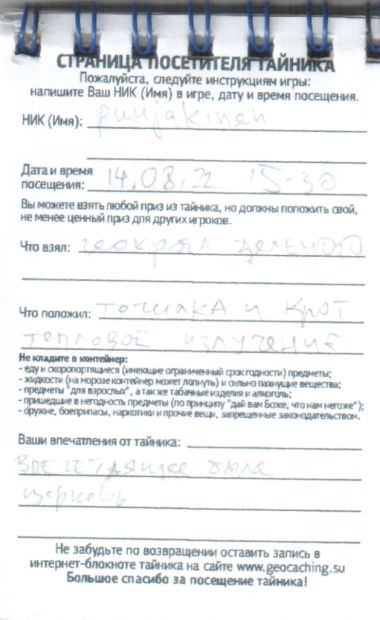 СТРАНИЦА ПОСЕТИТЕЛЯ ТАЙНИКА
Пожалуйста, следуйте инструкциям игры:
напишите Ваш НИК (Имя) в игре, дату и время посещения.
НИК (Имя): puujakinen
Дата и время
посещения: 14.08.22 15-30
Вы можете взять любой приз из тайника, но должны положить свой,
не менее ценный приз для других игроков.
Что взял: геокрота зеленого
Что положил: точилка и крот
тепловое излучение
Не кладите в контейнер:
- еду и скоропортящиеся (имеющие ограниченный срок годности) предметы;
- жидкости (на морозе контейнер может лопнуть) и сильно пахнущие вещества;
- предметы "для взрослых", а так же табачные изделия и алкоголь;
- пришедшие в негодность предметы (по принципу "дай вам Боже, что нам негоже");
- оружие, боеприпасы, наркотики и прочие вещи, запрещенные законодательством.
Ваши впечатления от тайника:
была
церковь
Не забудьте по возвращении оставить запись в
интернет-блокноте тайника на сайте www.geocaching.su
Большое спасибо за посещение тайника!